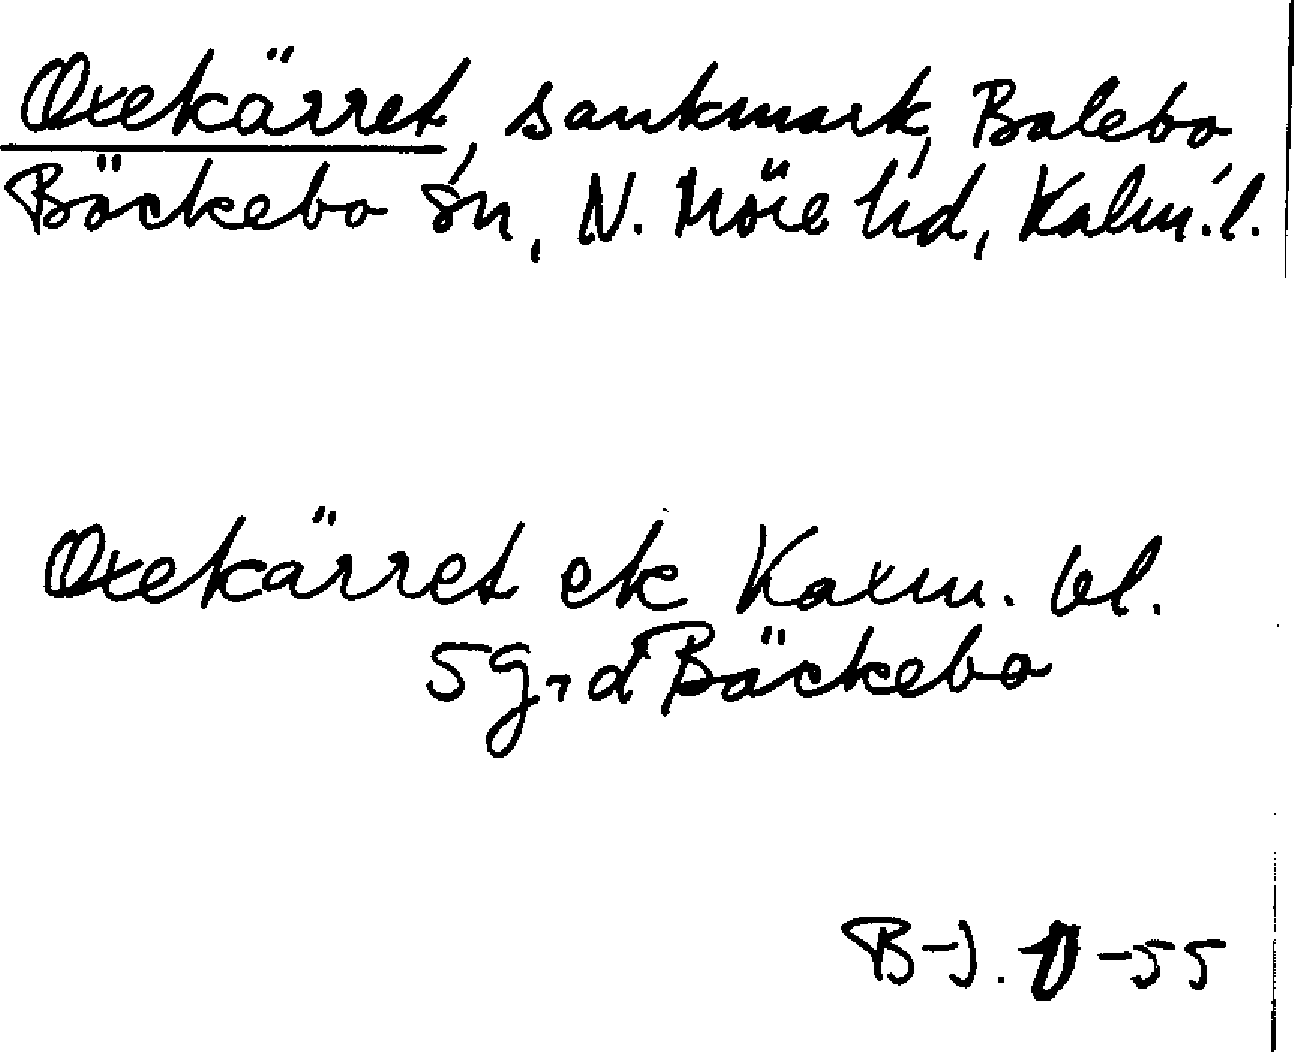 Oxekärret, sankmark, Balebo
Bäckebo sn, N. Möre hd, Kalm. l.
Oxekärret ek Kalm. bl.
5 g, d Bäckebo
B-J. -55